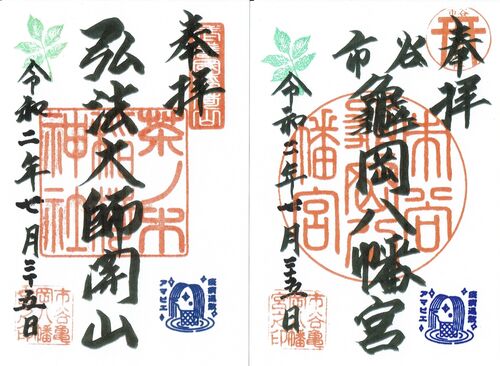 奉拝
弘法大師開山
茶ノ木
稲荷
神社
令和二年七月二十五日
市谷亀
岡八幡
宮之印
疫病退散
アマビエ
奉拝
市谷
龜岡八幡宮
令和二年七月二十五日
市谷亀
岡八幡
宮之印
疫病退散
アマビエ